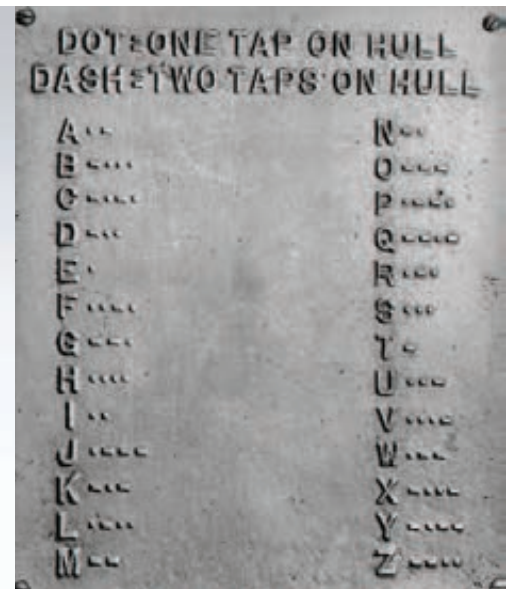 DOT=ONE TAP ON HULL
DASH=TWO TAPS ON HULL
A
B
C
D
E
F
G
H
I
J
K
L
M
N
O
P
Q
R
S
T
U
V
W
X
Y
Z